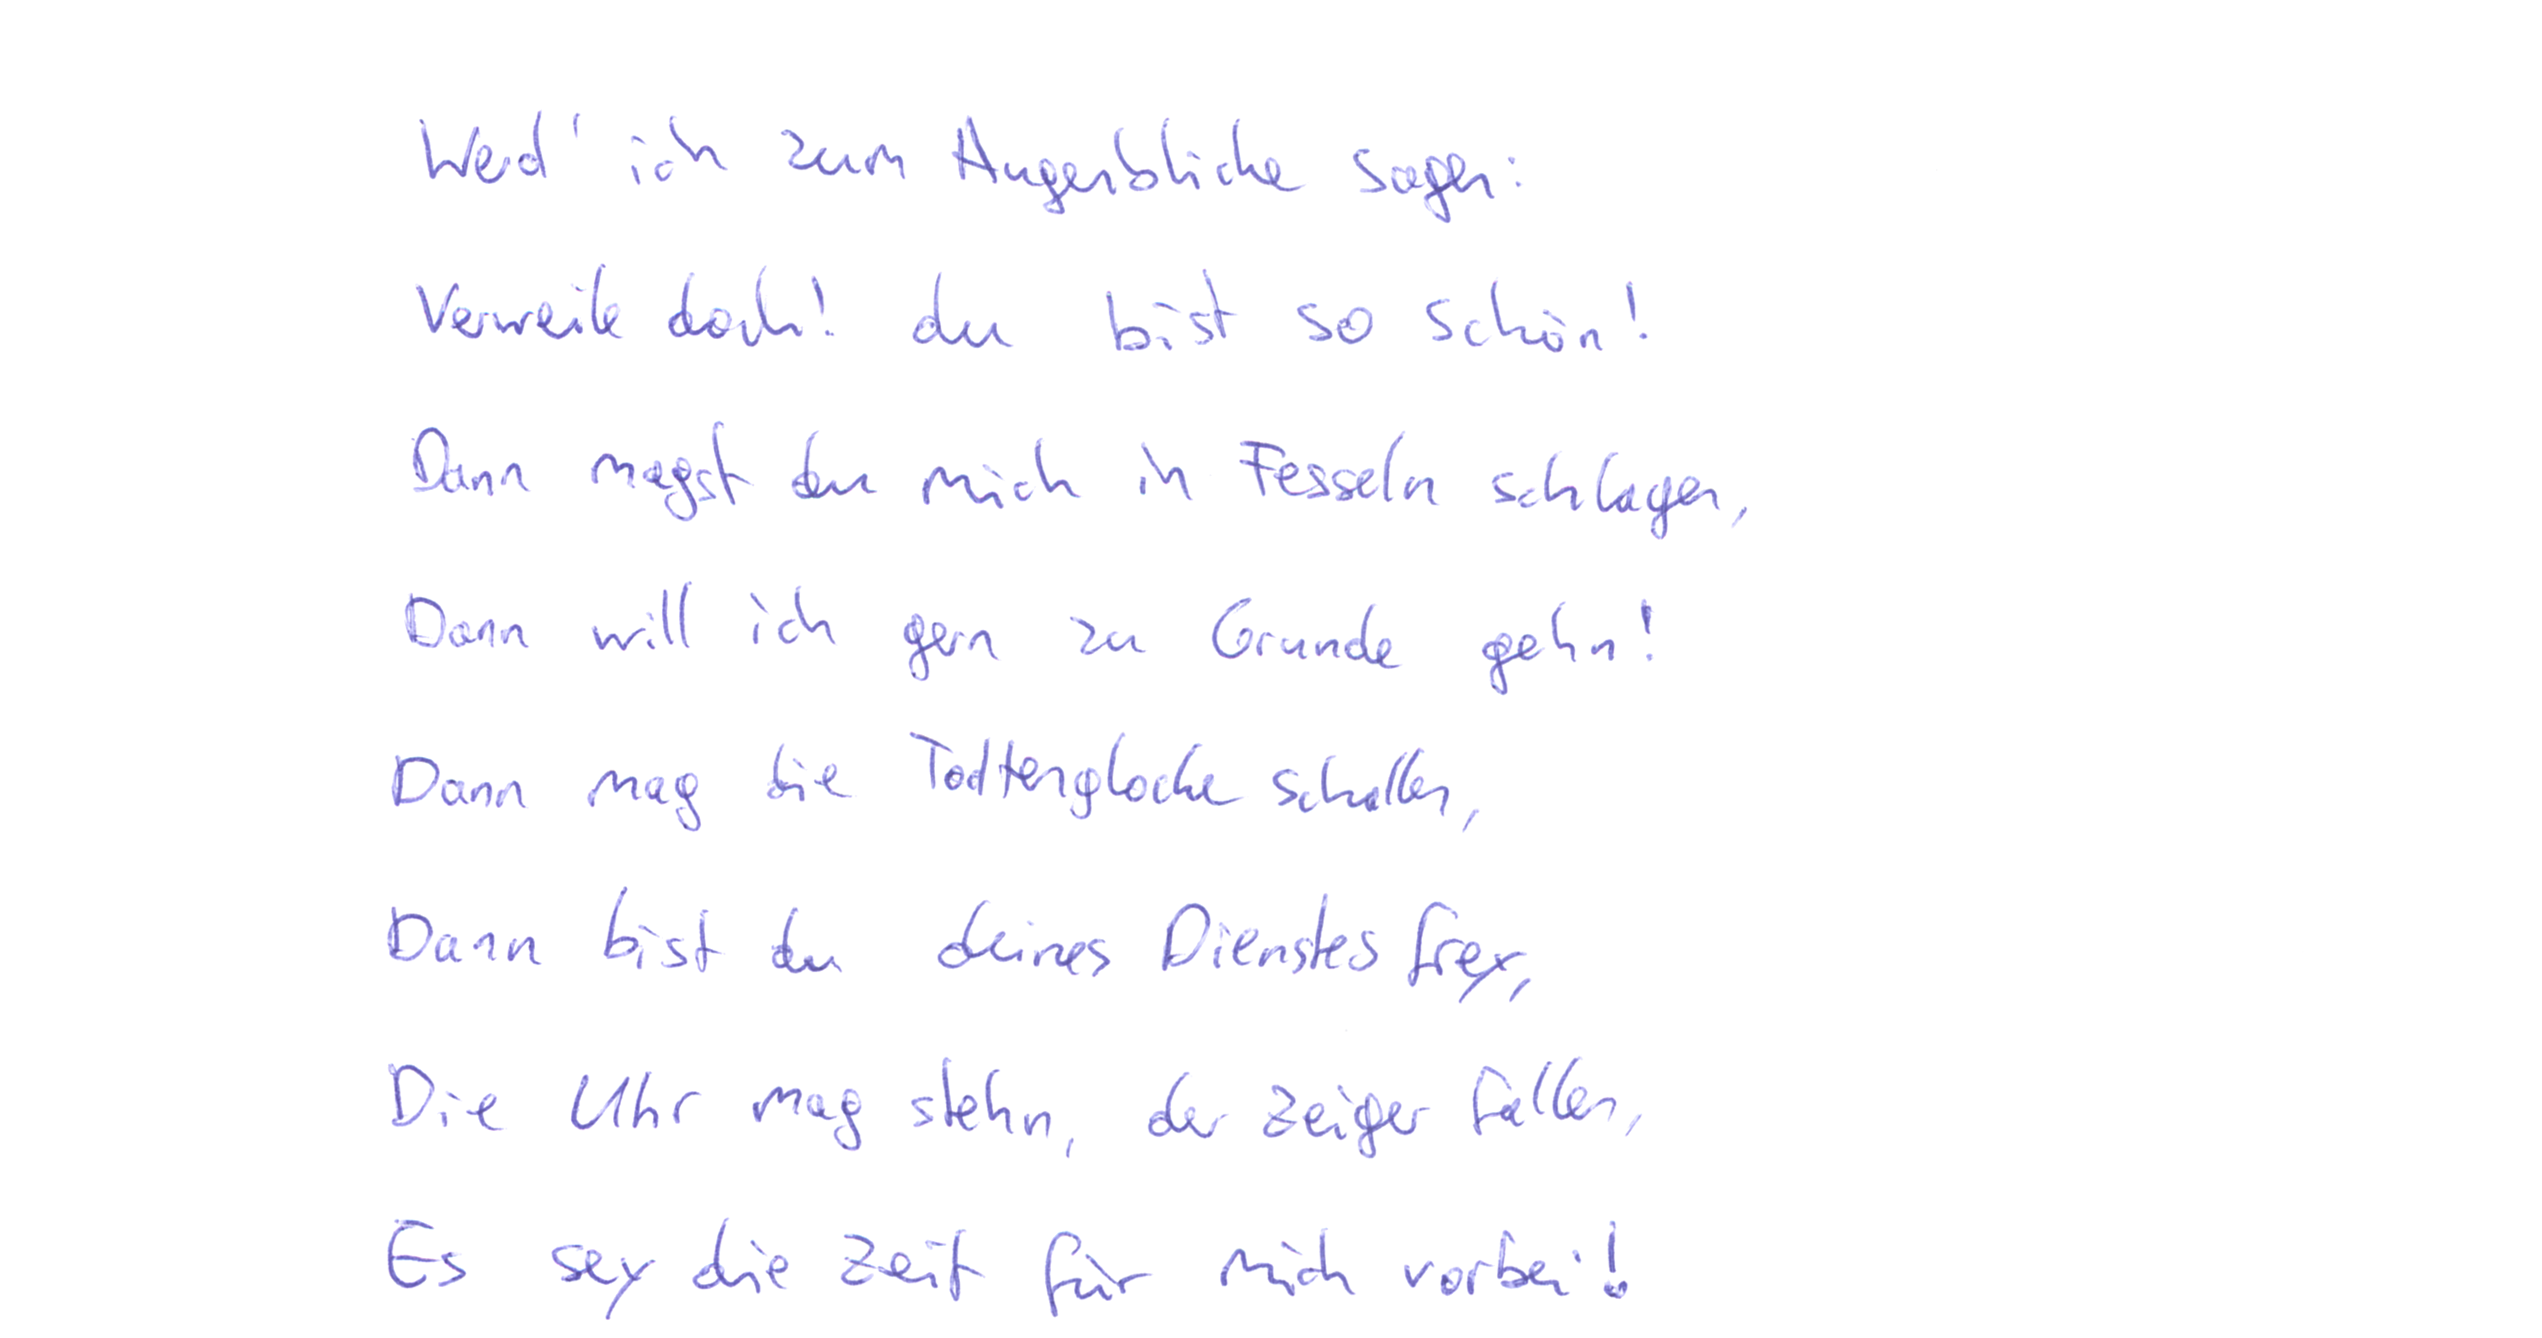 Werd' ich zum Augenblicke sagen:
Verweile doch! du bist so schön!
Dann magst du mich in Fesseln schlagen,
Dann will ich gern zu Grunde gehn!
Dann mag die Todtenglocke schallen,
Dann bist du deines Dienstes frey,
Die Uhr mag stehn, der Zeiger fallen,
Es sey die Zeit für mich vorbei!